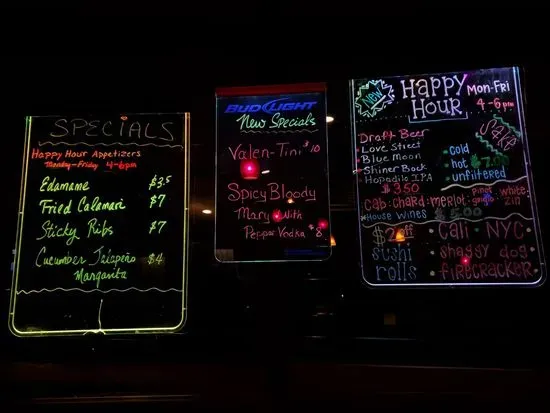 SPECIALS
Happy Hour Appetizers
Monday-Friday 4-6pm
Edamame $3.5
Fried Calamari $7
Sticky Ribs $7
Cucumber Jalapeño Margarita $4
BUD LIGHT
New Specials
Valen-Tini $10
Spicy Bloody
Mary with
Pepper Vodka $8
New
Happy Hour
Mon-Fri
4-6pm
Draft Beer
Love Street
Blue Moon
Shiner Bock
Hopadillo IPA
$3.50
Sake
cold
hot $7.00
unfiltered
cab:chard:merlot: pinot grigio white zin
*House Wines $5.00
$2 off
sushi
rolls
Cali • NYC •
shaggy dog
firecracker